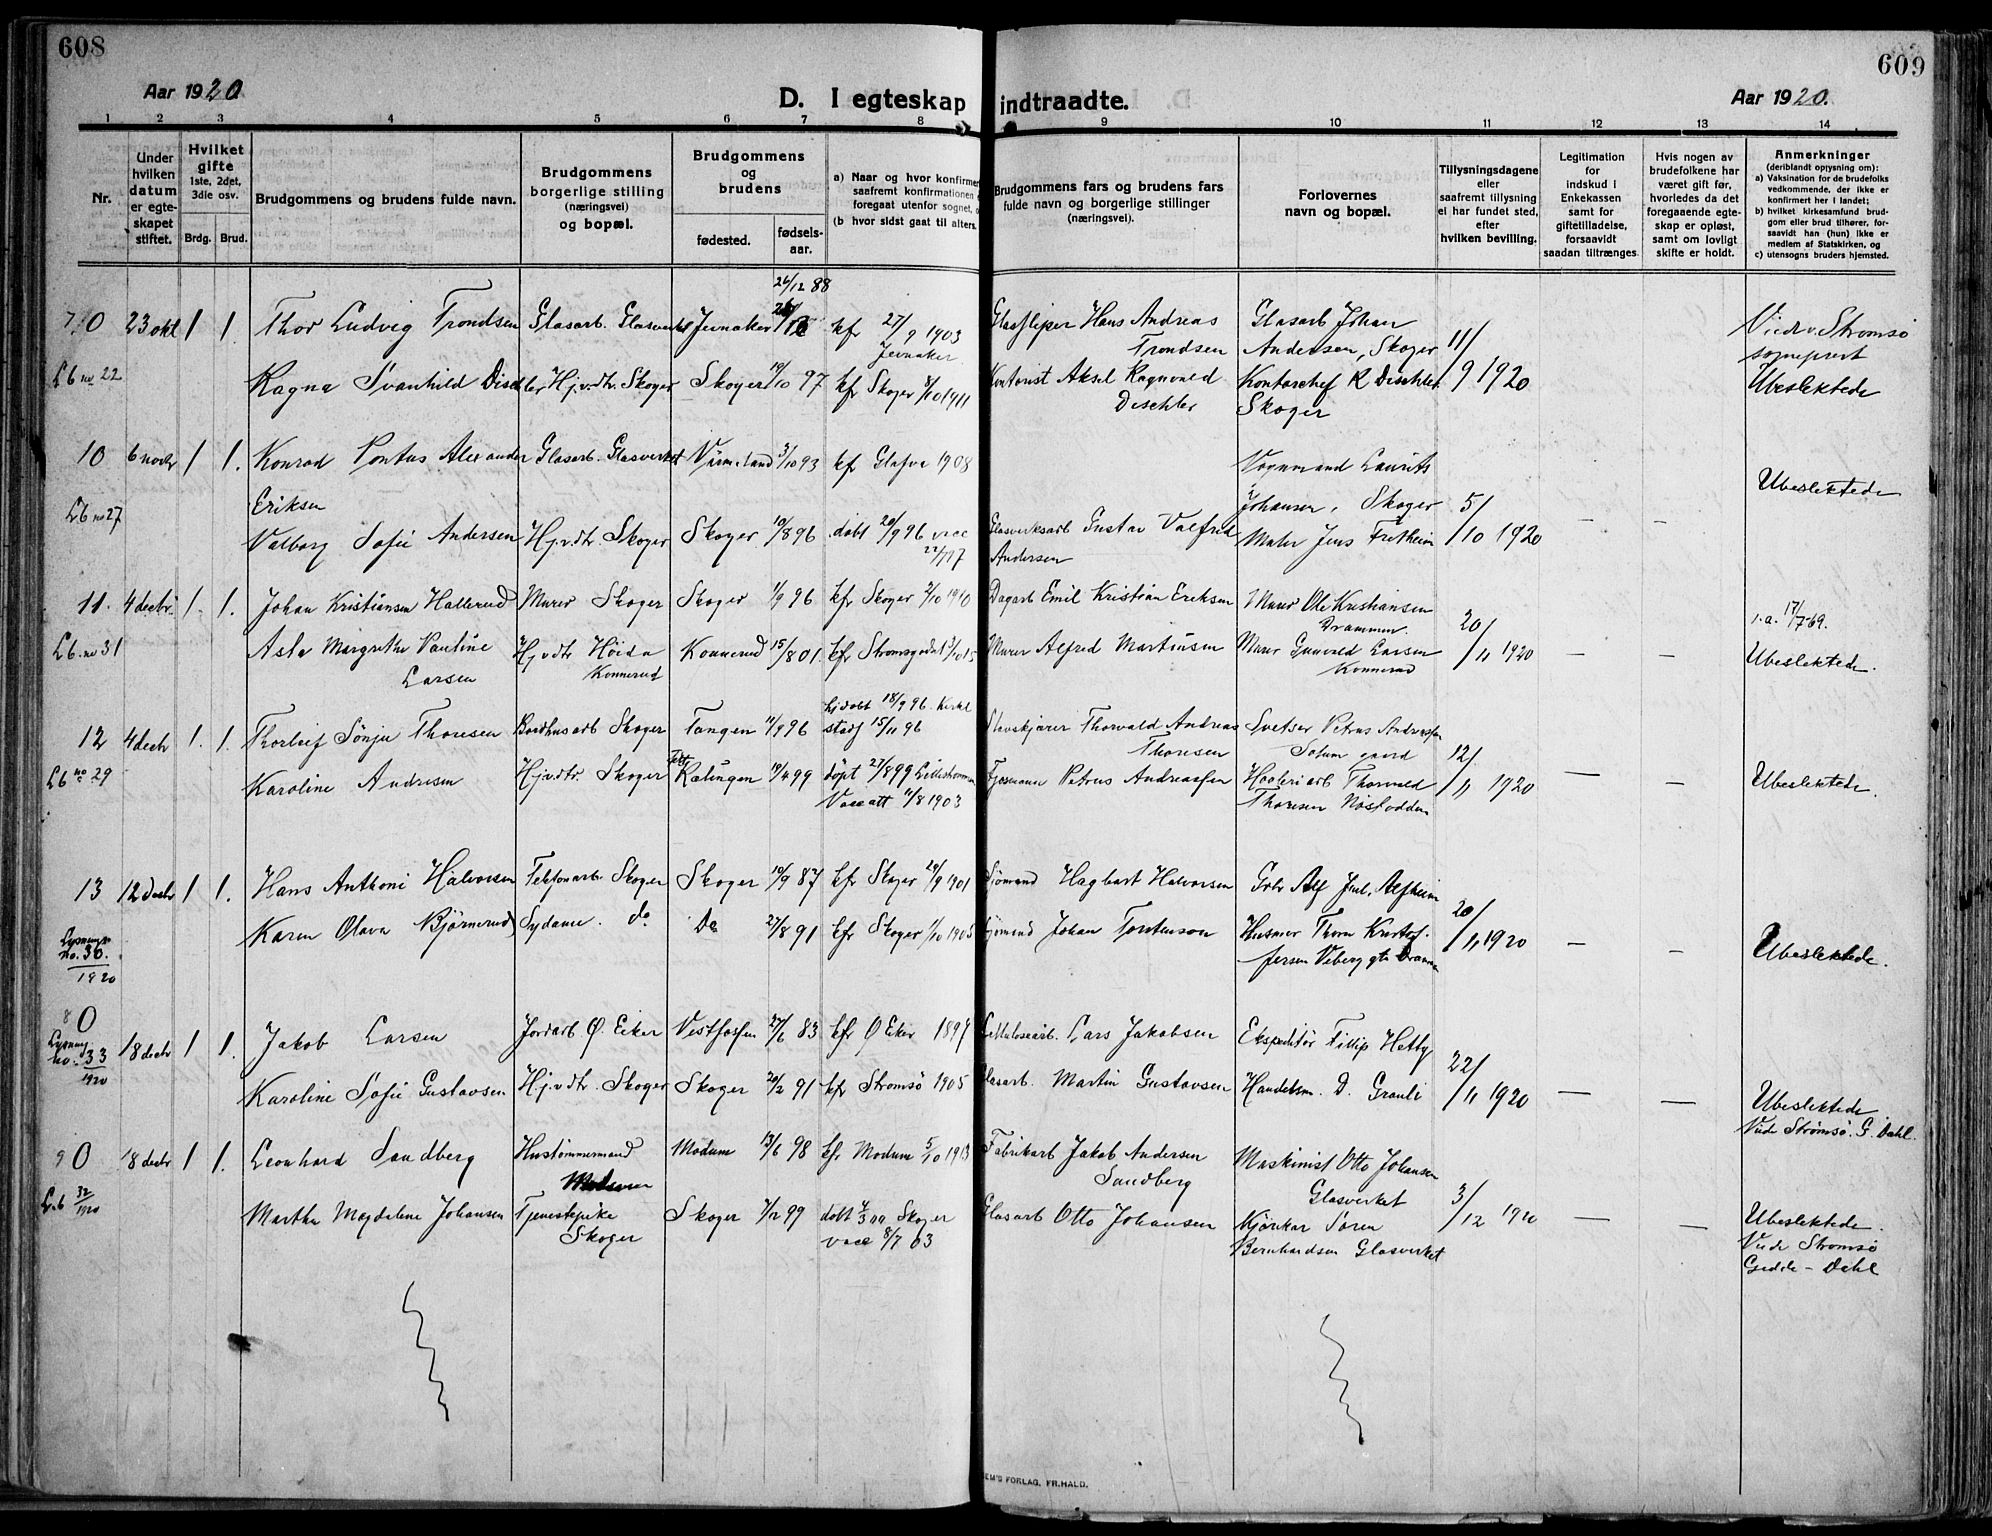 608
609
Aar 1920
D. I egteskap indtraadte.
Aar 1920.
1 2 3 4 5 6 7 8 9 10 11 12 13 14
Nr.
Under hvilken datum er egteskapet stiftet.
Hvilket gifte 1ste, 2det, 3die osv.
Brdg. Brud.
Brudgommens og brudens fulde navn.
Brudgommens borgerlige stilling (næringsvei) og bopæl.
Brudgommens og brudens
fødested. fødselsaar.
a) Naar og hvor konfirmer
saafremt konfirmationen
foregaat utenfor sognet,
(b hvor sidst gaat til alters.
Brudgommens fars og brudens fars fulde navn og borgerlige stillinger (næringsvei).
Forlovernes navn og bopæl.
Tillysningsdagene eller saafremt tillysning ei har fundet sted, efter hvilken bevilling.
Legitimation for indskud i Enkekassen samt for giftetilladelse, forsaavidt saadan tiltrænges
Hvis nogen av brudefolkene har været gift før, hvorledes da det foregaaende egteskap er opløst, samt om lovlig skifte er holdt.
Anmerkninger
(deriblandt opysning om):
a) Vaksination for de brudefolks vedkommende, der ikke er konfirmert her i landet;
b) hvilket kirkesamfund brudgom eller brud tilhører, forsaavidt han (hun) ikke er medlem af Statskirken, og
c) utensogns bruders hjemsted.
26/12 88
7 0 23 okt 1 1. Thor Ludvig Trondsen Glasarb. Glasverket Jevnaker kf 27/9 1903 Jevnaker Hans Andreas Trondsen Glasarb Johan Andersen, Skoger 11/9 1920 Strømsø sogneprest
Lb no 22 Ragna Svanhild Dischler Hj.v.dtr. Skoger Skoger 19/10 97 kf Skoger 8/10 1911 Kontorist Aksel Ragnvald Dischler Kontorchef R Dischler Skoger Ubeslektede
10 6 novbr 1 1. Konrad Pontus Alexander Eriksen Glasarb. Glasverket Värmeland 3/10 93 kf Glafva 1908 Laurits Johansen, Skoger 5/10 1920 Ubeslektede
Lb no 27 Valborg Sofie Andersen Hj.v.dtr. Skoger Skoger 19/8 96 døbt 20/9 96 vacc Glasverksarb Gustav Valfrid Andersen Maler Jens Fretheim — —
11. 4 decbr 1. 1. Johan Kristiansen Hallerud Murer Skoger Skoger 1/9 96 kfr Skoger 2/10 1910 Dagarb Emil Kristian Eriksen Murer Ole Kristiansen Drammen. 20/11 1920 17/7 69.
Lb. no 31 Asta Margrethe Pauline Larsen Hj.v.dtr Konnerud Konnerud 15/8 01. kfr Murer Alfred Martinsen Murer Gunvald Larsen Konnerud — — Ubeslektede.
12 4 decbr 1. 1. Thorleif Sønju Thoresen Skoger Tangen 11/9 96 15/11 96 Thorvald Andreas Thoresen Petrus Andreassen 12/11 1920
Lb no 29 Karoline Andresen Hj.v.dtr. Skoger Rælingen 19/4 99 døpt 27/8 99 Lillestrømmen Vacc att 11/8 1903 Petrus Andreassen Thorvald Thoresen Nøstodden — — Ubeslektede.
13 12 decbr 1 1. Hans Anthoni Halvorsen Telefonarb. Skoger Skoger 19/9 87 kfr Skoger 29/9 1901 Sjømand Hagbart Halvorsen 20/11 1920
Lysnings no. 30. 1920 Karen Olava Bjørnerud Sydame. do Do 27/8 91 kfr Skoger 1/10 1905 Sjømand Johan Torstenson — — Ubeslektede.
8 0 18 decbr 1 1. Jakob Larsen Jordarb Ø. Eiker Vestfossen 27/6 83 kfr Ø Eker 1897 Cellulosearb. Lars Jakobsen Ekspeditør Fillip Hetby 22/11 1920
Lysning no. 33 1920 Karoline Sofie Gustavsen Hj.v.dtr. Skoger Skoger 20/2 91 kfr Strømsø 1905 Glasarb. Martin Gustavsen Handelsm. D. Granli — — Ubeslektede Viede Strømsø. G. Dahl.
9 0 18 decbr 1 1. Leonhard Sandberg Hustømmermand Modum Modum 13/6 98 kfr Modum 5/10 1913 Fabrikarb Jakob Andersen Sandberg Maskinist Otto Johansen Glasverket 3/12 1920
Lb 32/1920 Martha Magdalene Johansen Tjenestepike Skoger Skoger 99 Skoger vacc 8/7 03 Glasarb Otto Johansen Kjørekar Søren Bernhardsen Glasverket — — Ubeslektede. Viede Strømsø Gedde-Dahl
EM'S FORLAG, FR.HALD.